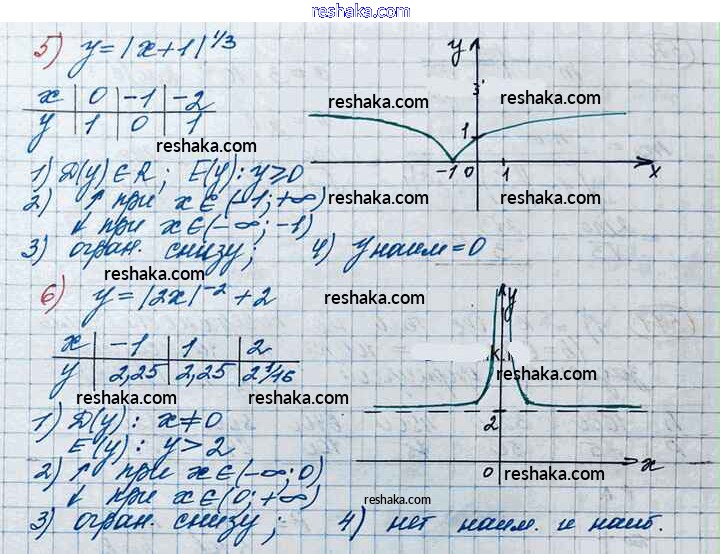 reshaka.com
5) y=|x+1|^1/3
x | 0 | -1 | -2
y | 1 | 0 | 1
1) D(y) ∈ R; E(y): y≥0
2) ↑ при x∈(-1; +∞)
↓ при x∈(-∞; -1)
3) огран. снизу; 4) y наим = 0
y
3
1
-1 0 1 x
reshaka.com
reshaka.com
reshaka.com
reshaka.com
reshaka.com
reshaka.com
6) y=|2x|^-2 + 2
x | -1 | 1 | 2
y | 2,25 | 2,25 | 2 1/16
1) D(y): x≠0
E(y): y>2
2) ↑ при x∈(-∞; 0)
↓ при x∈(0; +∞)
3) огран. снизу; 4) нет наим. и наиб.
y
2
0 x
reshaka.com
reshaka.com
reshaka.com
reshaka.com
reshaka.com
reshaka.com